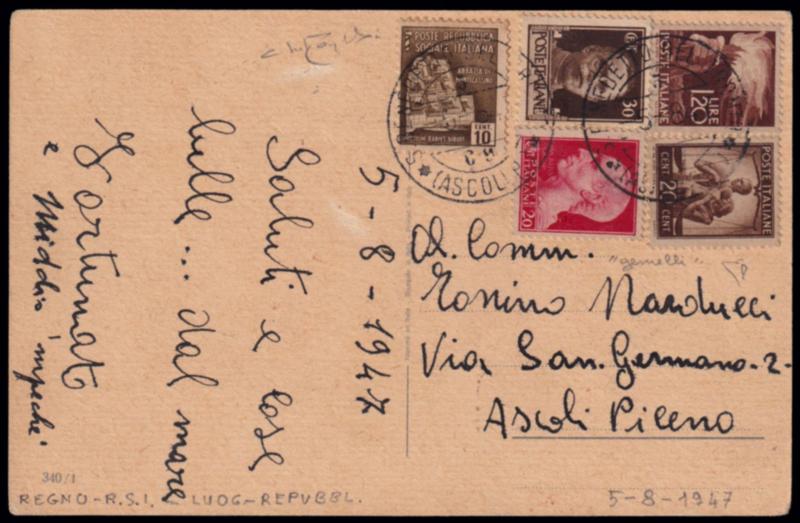 Saluti e cose
belle... dal mare
Fortunat
e
5-8-1947
POSTE REPUBBLICA
SOCIALE ITALIANA
ABBAZIA DI
MONTECASSINO
CENT.
10
POSTE ITALIANE
CENT.
30
POSTE ITALIANE
LIRE
1,20
20
POSTE ITALIANE
CENT 20 CENT
(ASCOLI
Al Comm.
"gemelli"
Tonino Narducci
Via San Germano-2-
Ascoli Piceno
340/1
REGNO-R.S.I. LUOG-REPVBBL.
5-8-1947